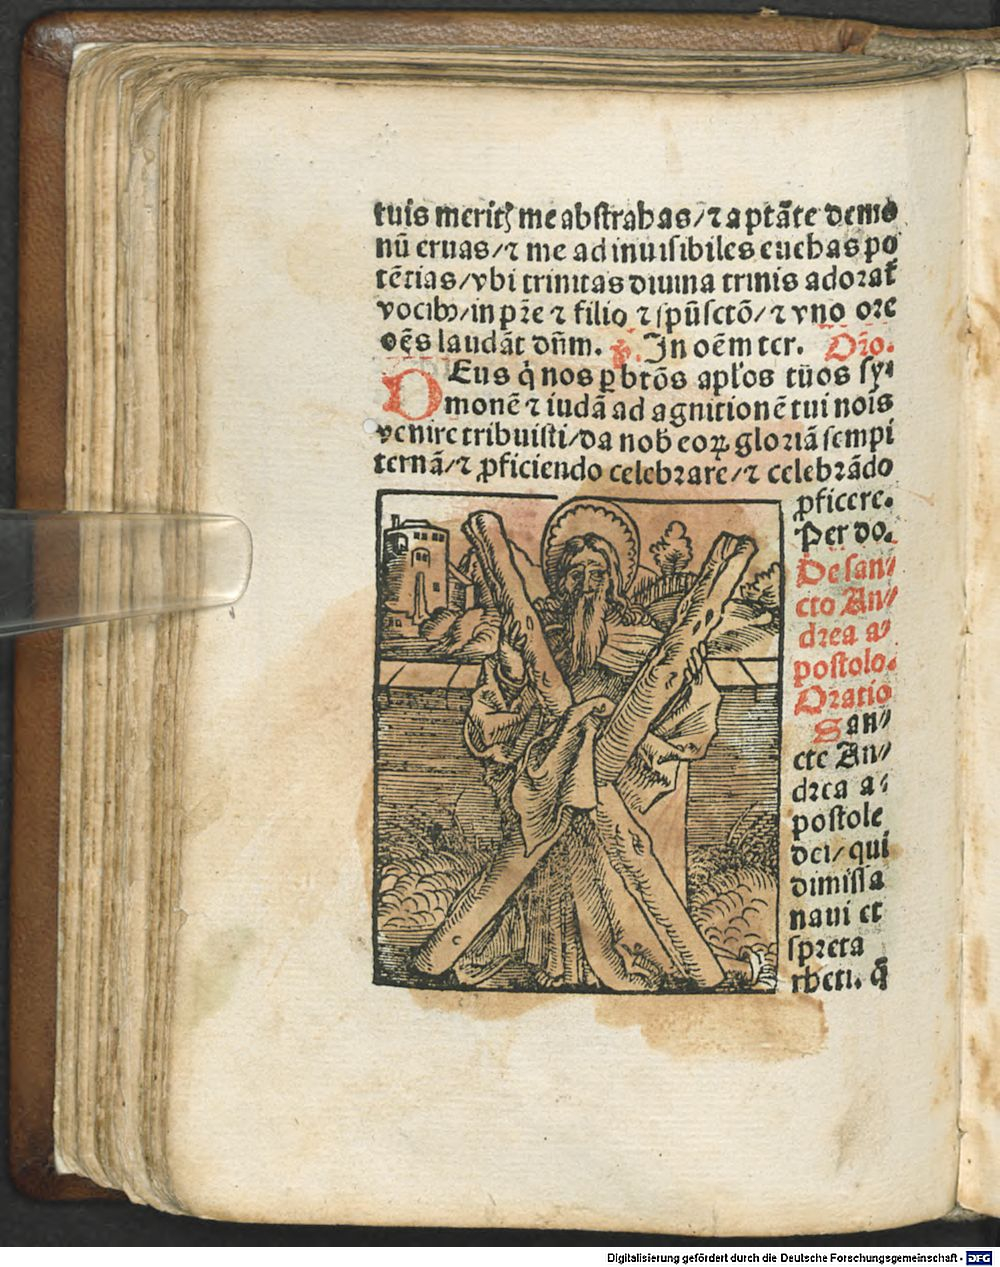 tuis meritꝭ me abstrahas/⁊ a ptāte demo
nū eruas/⁊ me ad inuisibiles euehas po
tētias/vbi trinitas diuina trinis adorat᷑
vocibꝰ/in pr̄e ⁊ filio ⁊ spūsctō/⁊ vno ore
oēs laudāt dn̄m. In oēm ter. Orō.
DEus q̇ nos ꝑ btōs apl'os tuos sy⸗
monē ⁊ iudā ad agnitionē tui nois
venire tribuisti/da nob eoꝝ gloriā sempi
ternā/⁊ ꝓficiendo celebrare/⁊ celebrādo
ꝓficere.
Per do.
De san⸗
cto An⸗
drea a⸗
postolo.
Oratio
San⸗
cte An⸗
drea a⸗
postole
dei/qui
dimissa
naui et
spreta
rheti. q̄
Digitalisierung gefördert durch die Deutsche Forschungsgemeinschaft - DFG